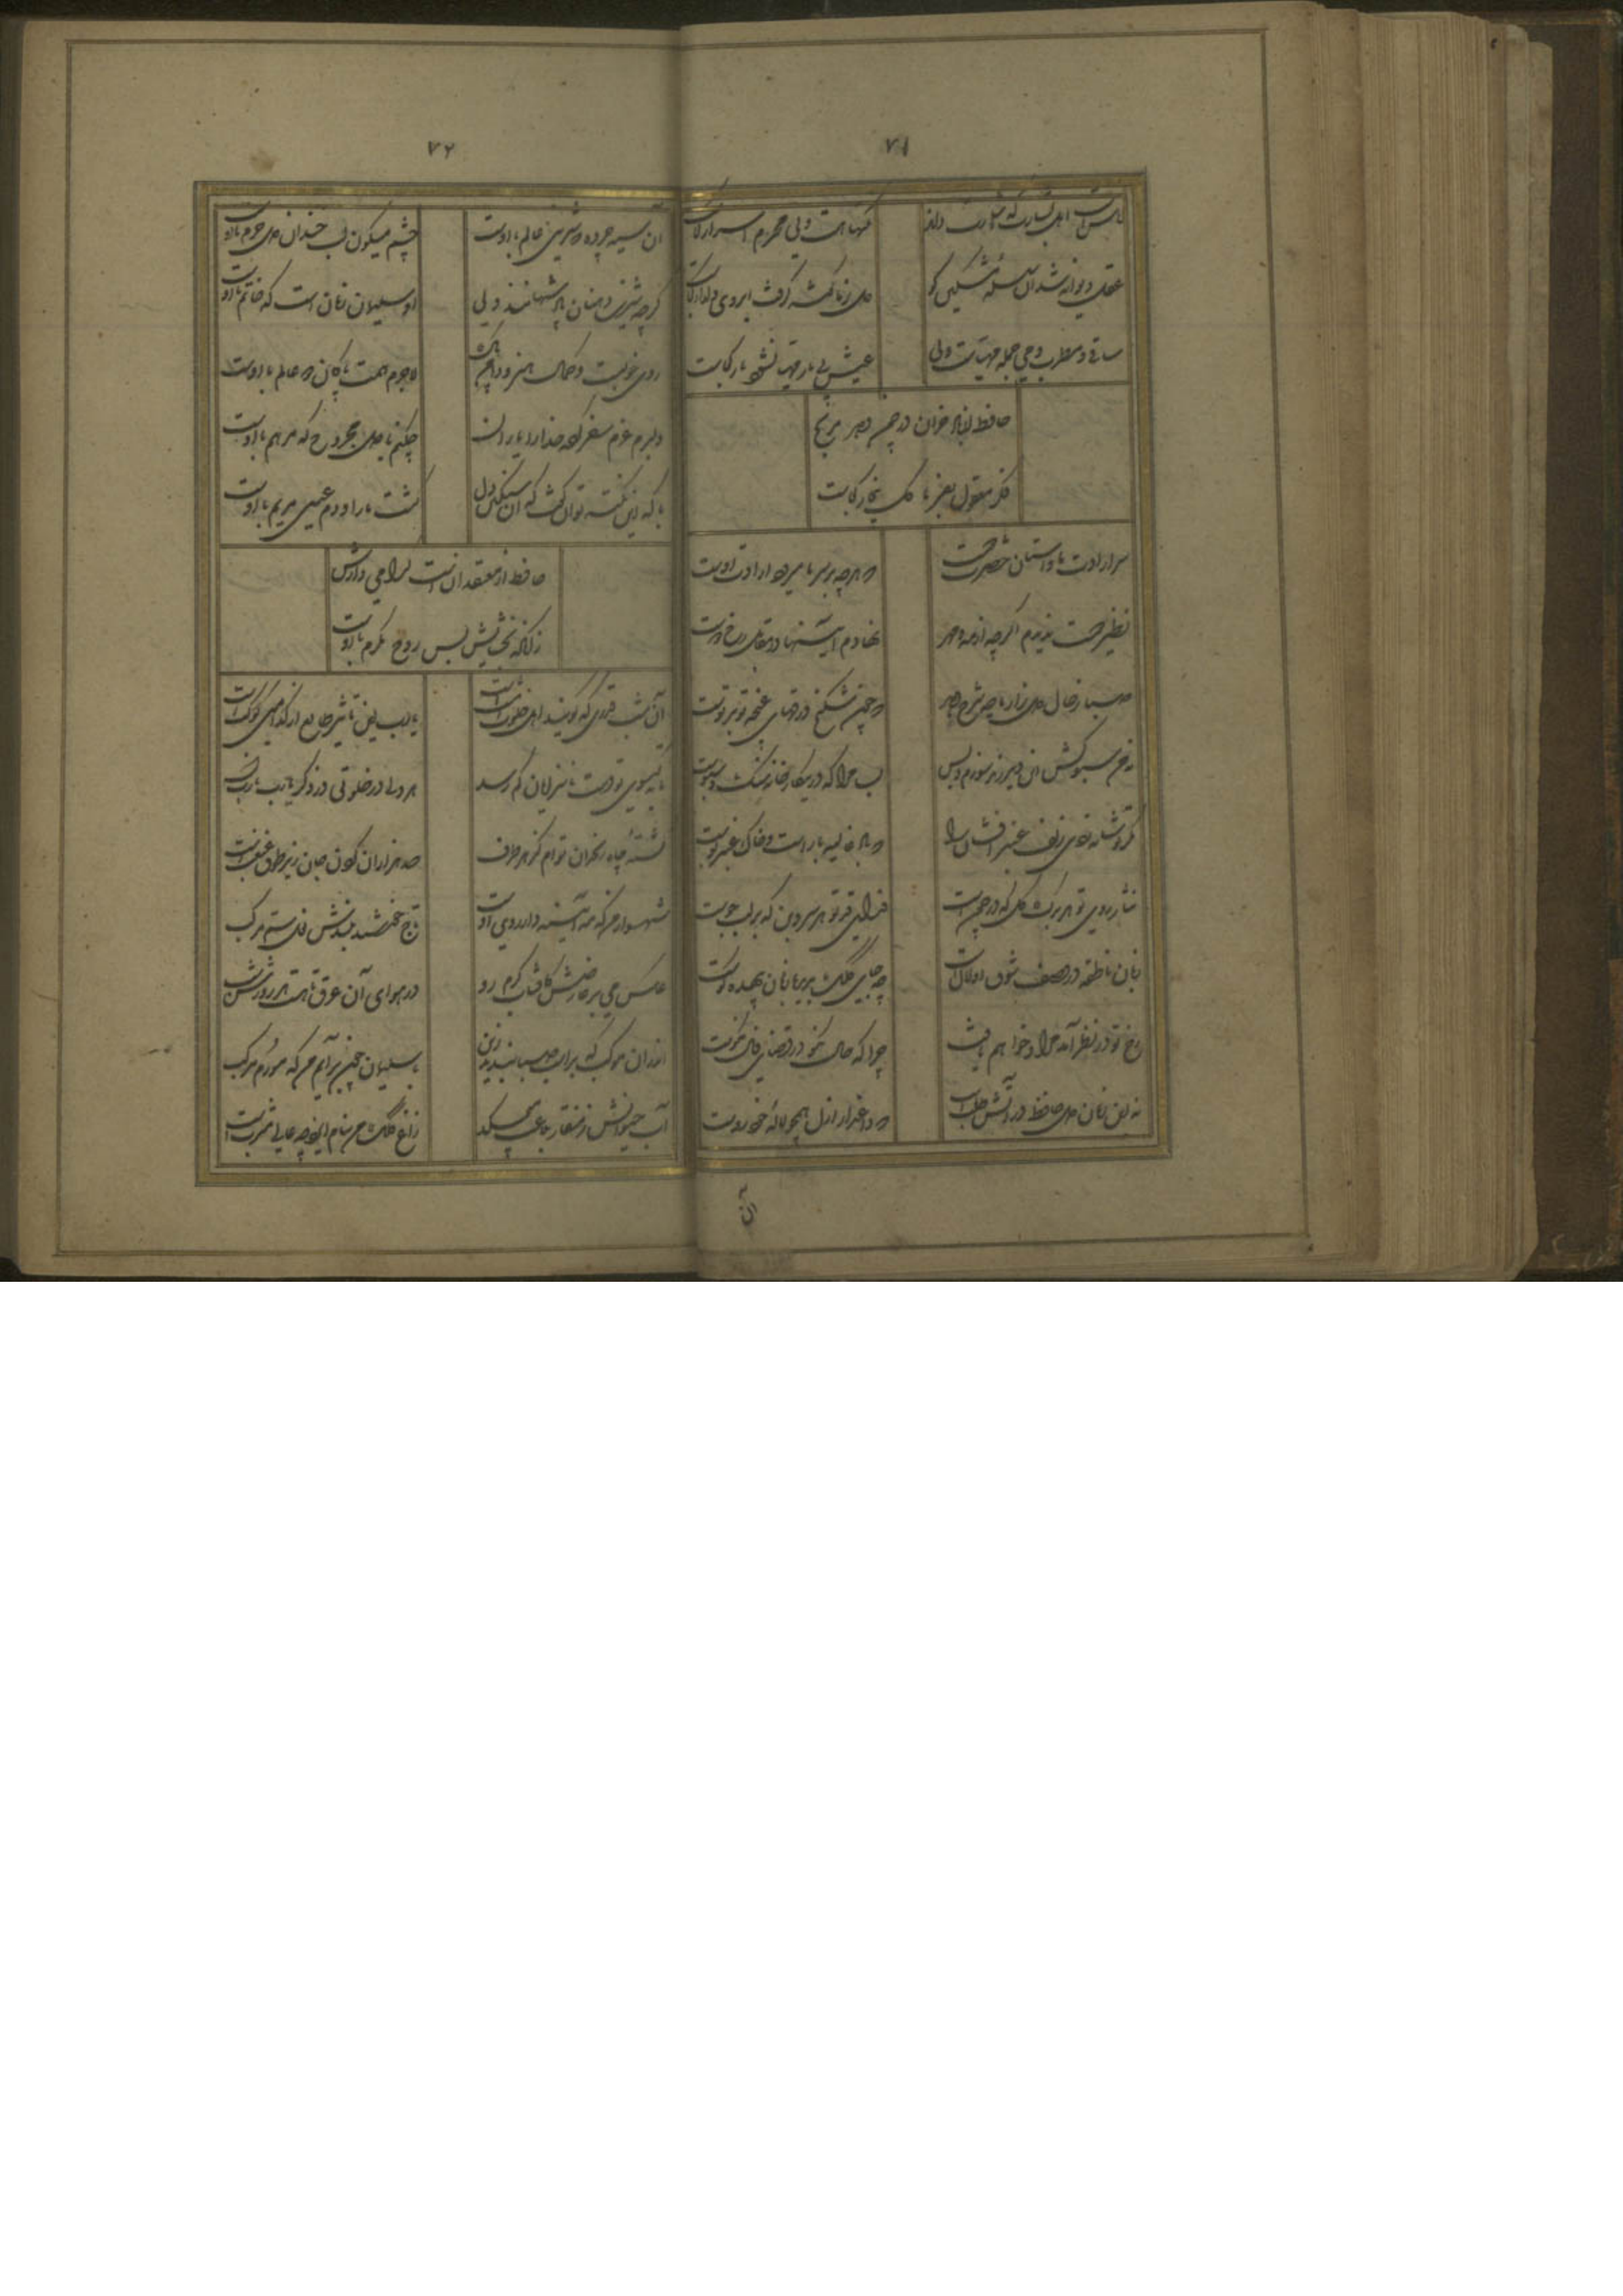 ۷۱
آنکس است اهل بشارت که اشارت داند
نکتها هست ولی محرم اسرار کجاست
عقل دیوانه شد آن سلسله مشکین کو
دل ز ما گوشه گرفت ابروی دلدار کجاست
ساقی و مطرب و می جمله مهیاست ولی
عیش بی یار مهیا نشود یار کجاست
حافظ از باد خزان در چمن دهر مرنج
فکر معقول بفرما گل بیخار کجاست
سر ارادت ما و آستان حضرت دوست
که هرچه بر سر ما میرود ارادت اوست
نظیر دوست ندیدم اگرچه از مه و مهر
نهادم آینها در مقابل رخ دوست
صبا ز حال دل زار ما چه شرح دهد
که چون شکنج ورقهای غنچه تو بر توست
نه من سبوکش این دیر رند سوزم و بس
بسا سرا که در این کارخانه سنگ و سبوست
مگر تو شانه زدی زلف عنبر افشان را
که باد غالیه بار است و خاک عنبر بوست
نثار روی تو هر برگ گل که در چمن است
فدای قد تو هر سرو بن که بر لب جوست
زبان ناطقه در وصف شوق او لال است
چه جای کلک بریده زبان بیهده گوست
رخ تو در نظر آمد مراد خواهم یافت
چرا که حال نکو در قفای فال نکوست
نه این زمان دل حافظ در آتش طلب است
که داغدار ازل همچو لاله خودروست
آن
۷۲
آن سیه چرده که شیرینی عالم با اوست
چشم میگون لب خندان دل خرم با اوست
گرچه شیرین دهنان پادشهانند ولی
او سلیمان زمان است که خاتم با اوست
روی خوبست و کمال هنر و دامن پاک
لاجرم همت پاکان دو عالم با اوست
دلبرم عزم سفر کرد خدا را یاران
چکنم با دل مجروح که مرهم با اوست
با که این نکته توان گفت که آن سنگین دل
کشت ما را و دم عیسی مریم با اوست
حافظ از معتقدانست گرامی دارش
زانکه بخشایش بس روح مکرم با اوست
آن شب قدری که گویند اهل خلوت امشب است
یارب این تأثیر طالع از کدامین کوکبست
تا به گیسوی تو دست ناسزایان کم رسد
هر دلی در خلوتی در ذکر یارب یاربست
کشته چاه زنخدان توام کز هر طرف
صد هزاران گردن جان زیر طوق غبغبست
شهسوار من که مه آیینه دار روی اوست
تاج خورشید بلندش خاک سم مرکب
عکس می بر عارضش کافتاب گرم رو
در هوای آن عرق تا هست هر روزش تبست
اندر آن موکب که بر پشت صبا بندند زین
با سلیمان چون برآیم من که مورم مرکب
آب حیوانش ز منقار بلاغت میچکد
زاغ کلک من بنام ایزد چه عالی مشربست